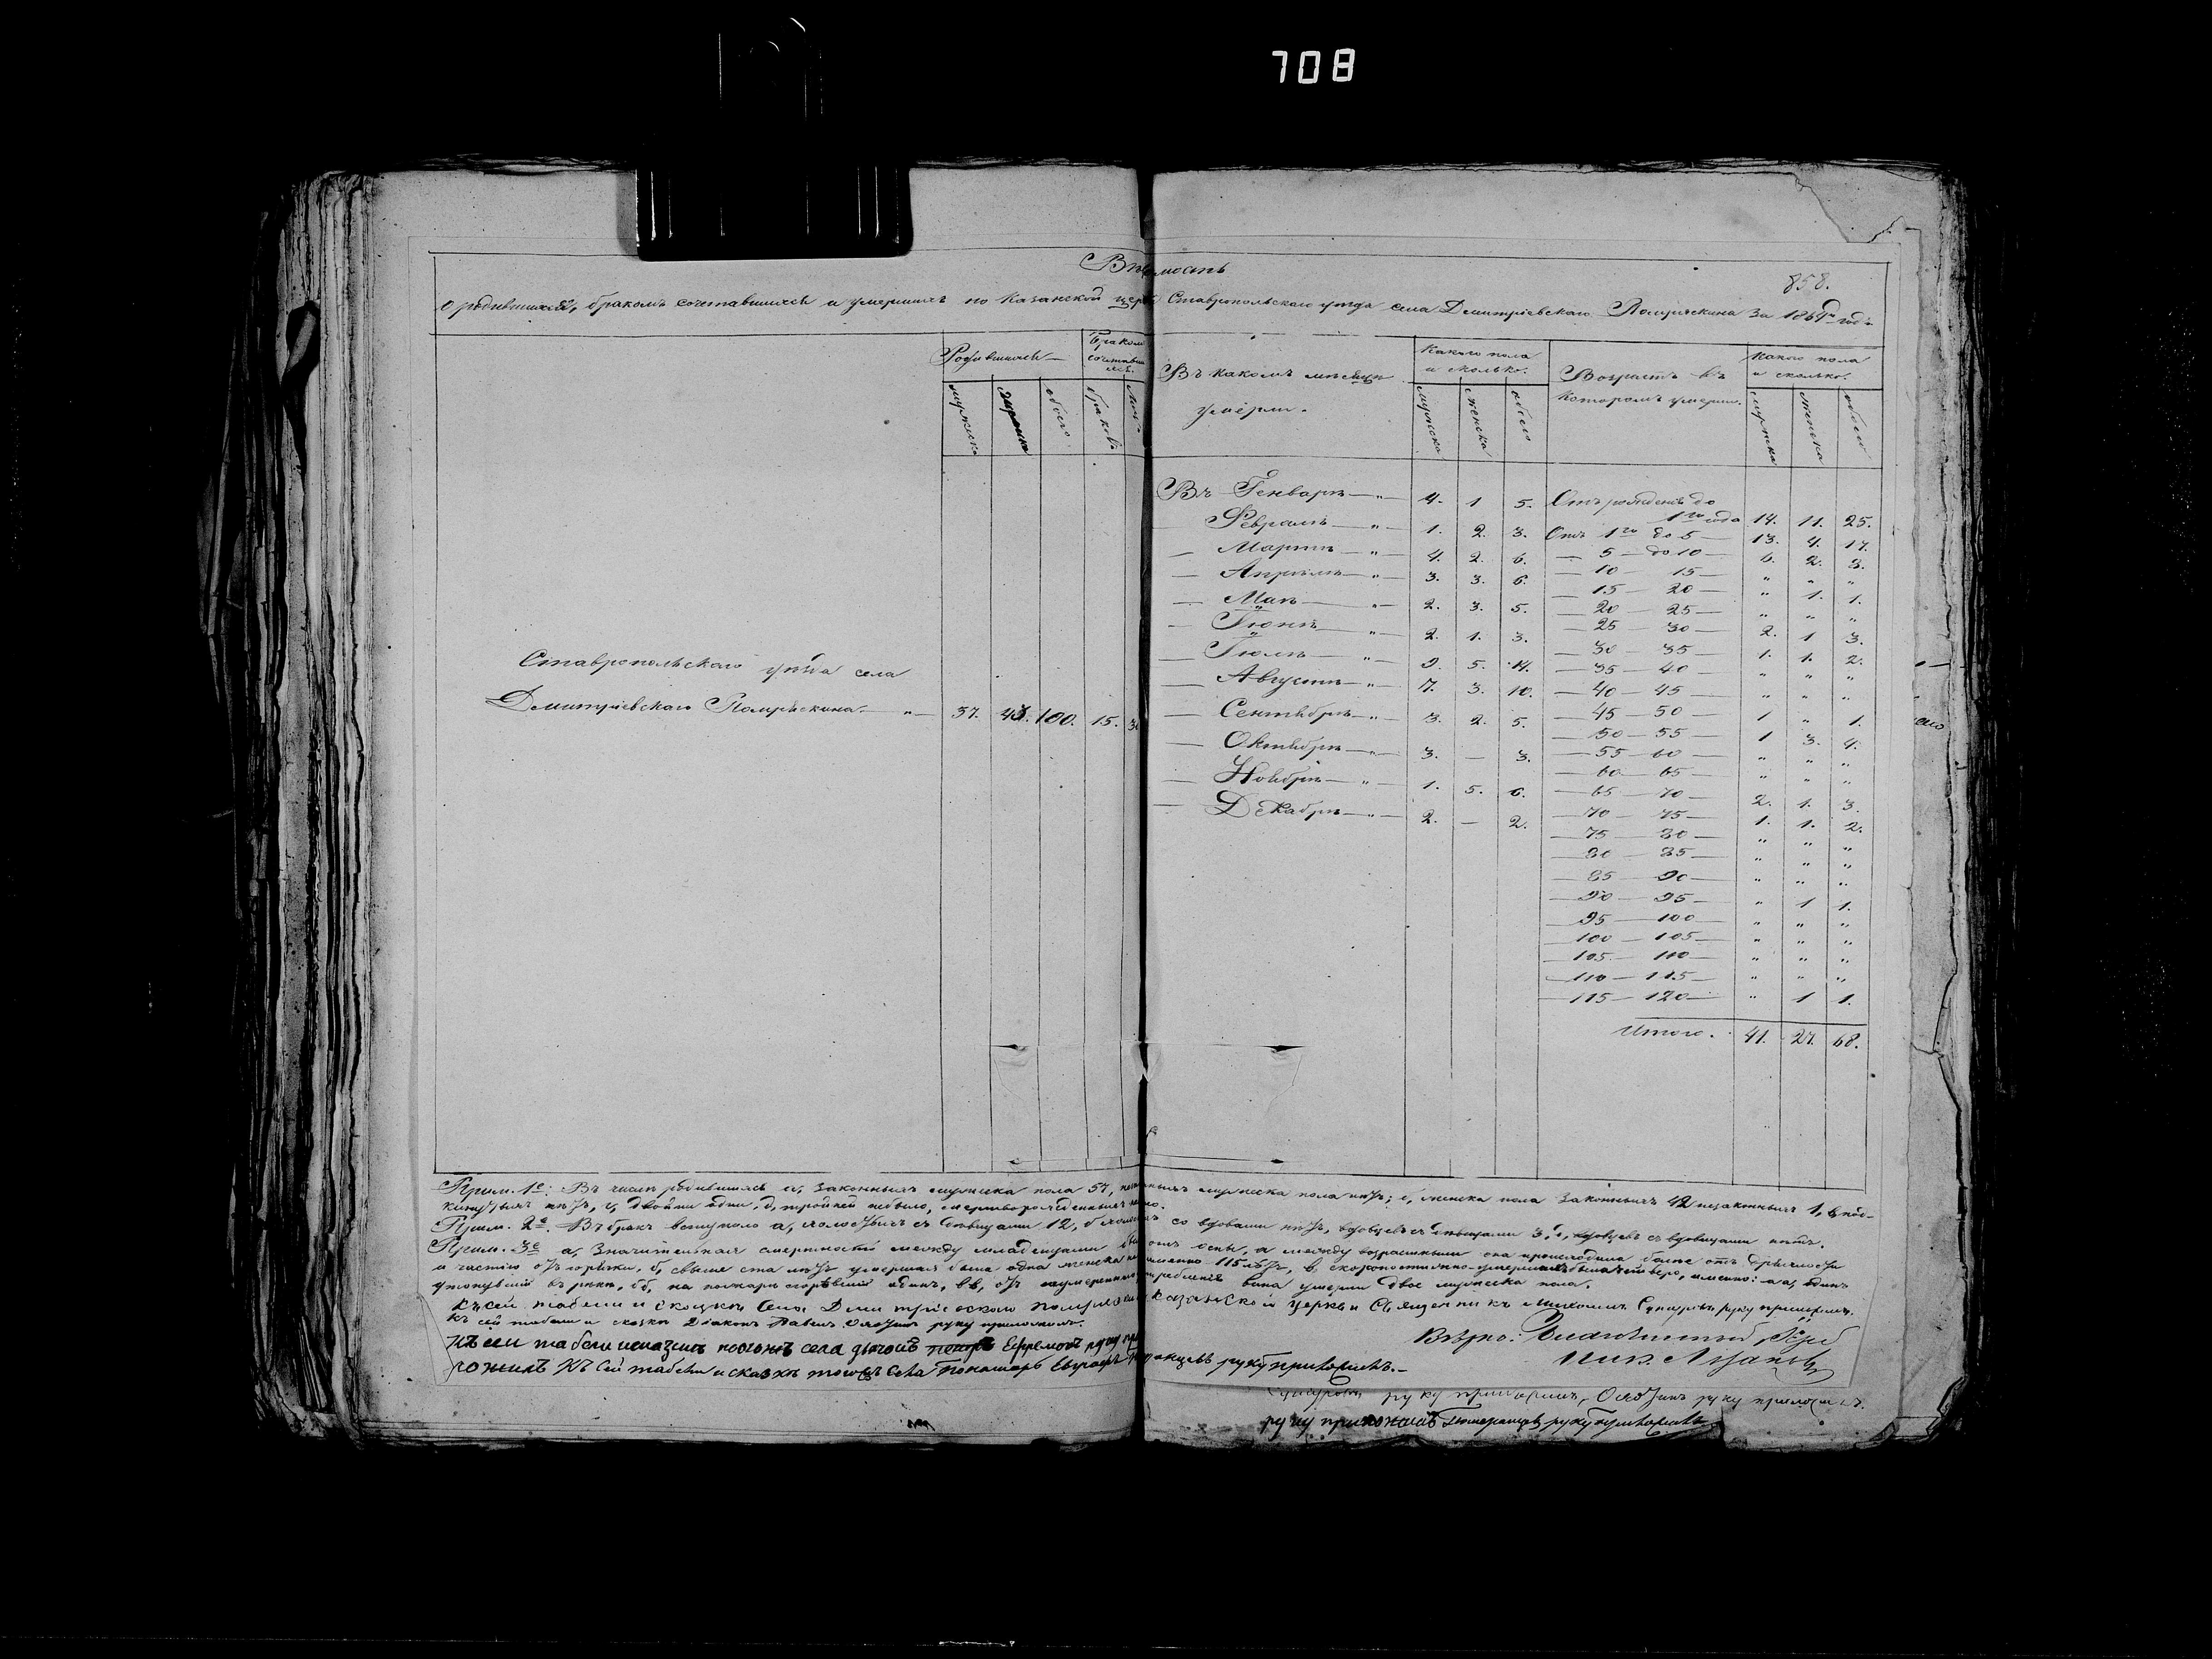 708
858.
Вѣдомость
О родившихся, бракомъ сочетавшихся и умершихъ по Казанской церкви Ставропольскаго уѣзда села Дмитріевскаго Помряскина за 1869й годъ
Родившихся
Бракомъ сочетавшихся.
Въ какомъ мѣсяцѣ умерли.
Какого пола и сколько.
Возрастъ въ которомъ умерли.
Какого пола и сколько.
мужеска женска обоего браковъ
мужеска женска обоего
мужеска женска обоего
Ставропольскаго уѣзда села
Дмитріевскаго Помряскина — „ — 57. 43. 100. 15. 30
Въ Генварѣ — „ — 4. 1 5.
— Февралѣ — „ — 1. 2. 3.
— Мартѣ — „ — 4. 2. 6.
— Апрѣлѣ — „ — 3. 3. 6.
— Маѣ — „ — 2. 3. 5.
— Іюнѣ — „ — 2. 1. 3.
— Іюлѣ — „ — 9. 5. 14.
— Августѣ — „ — 7. 3. 10.
— Сентябрѣ — „ — 3. 2. 5.
— Октябрѣ — „ — 3. — 3.
— Ноябрѣ — „ — 1. 5. 6.
— Декабрѣ — „ — 2. — 2.
Отъ рожденія до
1го года 14. 11. 25.
Отъ 1го до 5 — 13. 4. 17.
— 5 — до 10 — 6. 2. 8.
— 10 — 15 — „ „ „
— 15 — 20 — „ 1. 1.
— 20 — 25 — „ „ „
— 25 — 30 — 2. 1 3.
— 30 — 35 — 1. 1. 2.
— 35 — 40 — „ „ „
— 40 — 45 — „ „ „
— 45 — 50 — 1 „ 1.
— 50 — 55 — 1 3. 4.
— 55 — 60 — „ „ „
— 60 — 65 — „ „ „
— 65 — 70 — 2. 1. 3.
— 70 — 75 — 1. 1. 2.
— 75 — 80 — „ „ „
— 80 — 85 — „ „ „
— 85 — 90 — „ „ „
— 90 — 95 — „ 1 1.
— 95 — 100 — „ „ „
— 100 — 105 — „ „ „
— 105 — 110 — „ „ „
— 110 — 115 — „ „ „
— 115 — 120 — „ 1 1.
Итого. 41. 27. 68.
Прим. 1е: Въ числѣ родившихся а, законныхъ мужеска пола 57, мужеска пола нѣтъ; б, женска пола законныхъ 42 незаконныхъ 1, в, под-
кинутыхъ нѣтъ, г, двойни одни, д, тройней небыло, мертворожденныхъ
Прим. 2е. Въ бракъ вступило а, холостыхъ съ дѣвицами 12, б, со вдовами нѣтъ, вдовцевъ съ дѣвицами 3, г, вдовцевъ съ вдовицами нѣтъ.
Прим. 3е а, Значительная смертность между младенцами оспы, а между возрастными она происходила болѣе отъ дряхлости
и частію отъ горячки, б, свыше ста лѣтъ умершая была одна женска 115 лѣтъ, в, скоропостижно-умершихъ было четверо, именно: аа, одинъ
утонувшій въ рѣкѣ, бб, на пожарѣ сгорѣвшій одинъ, вв, отъ неумереннаго употребленія вина умерли двое мужеска пола.
Къ сей табели и сказкѣ села Дмитріевскаго Казанской церкви Священникъ руку приложилъ.
Къ сей табели и сказкѣ Діаконъ Павелъ руку приложилъ.
Къ сей табели исказки тогожъ села дьячокъ Петръ Ефремовъ руку при
ложилъ Къ сей табели и сказкѣ тогожъ села Пономарь руку приложилъ.
Вѣрно: Благочинный
руку приложилъ, руку приложилъ.
руку приложилъ руку приложилъ